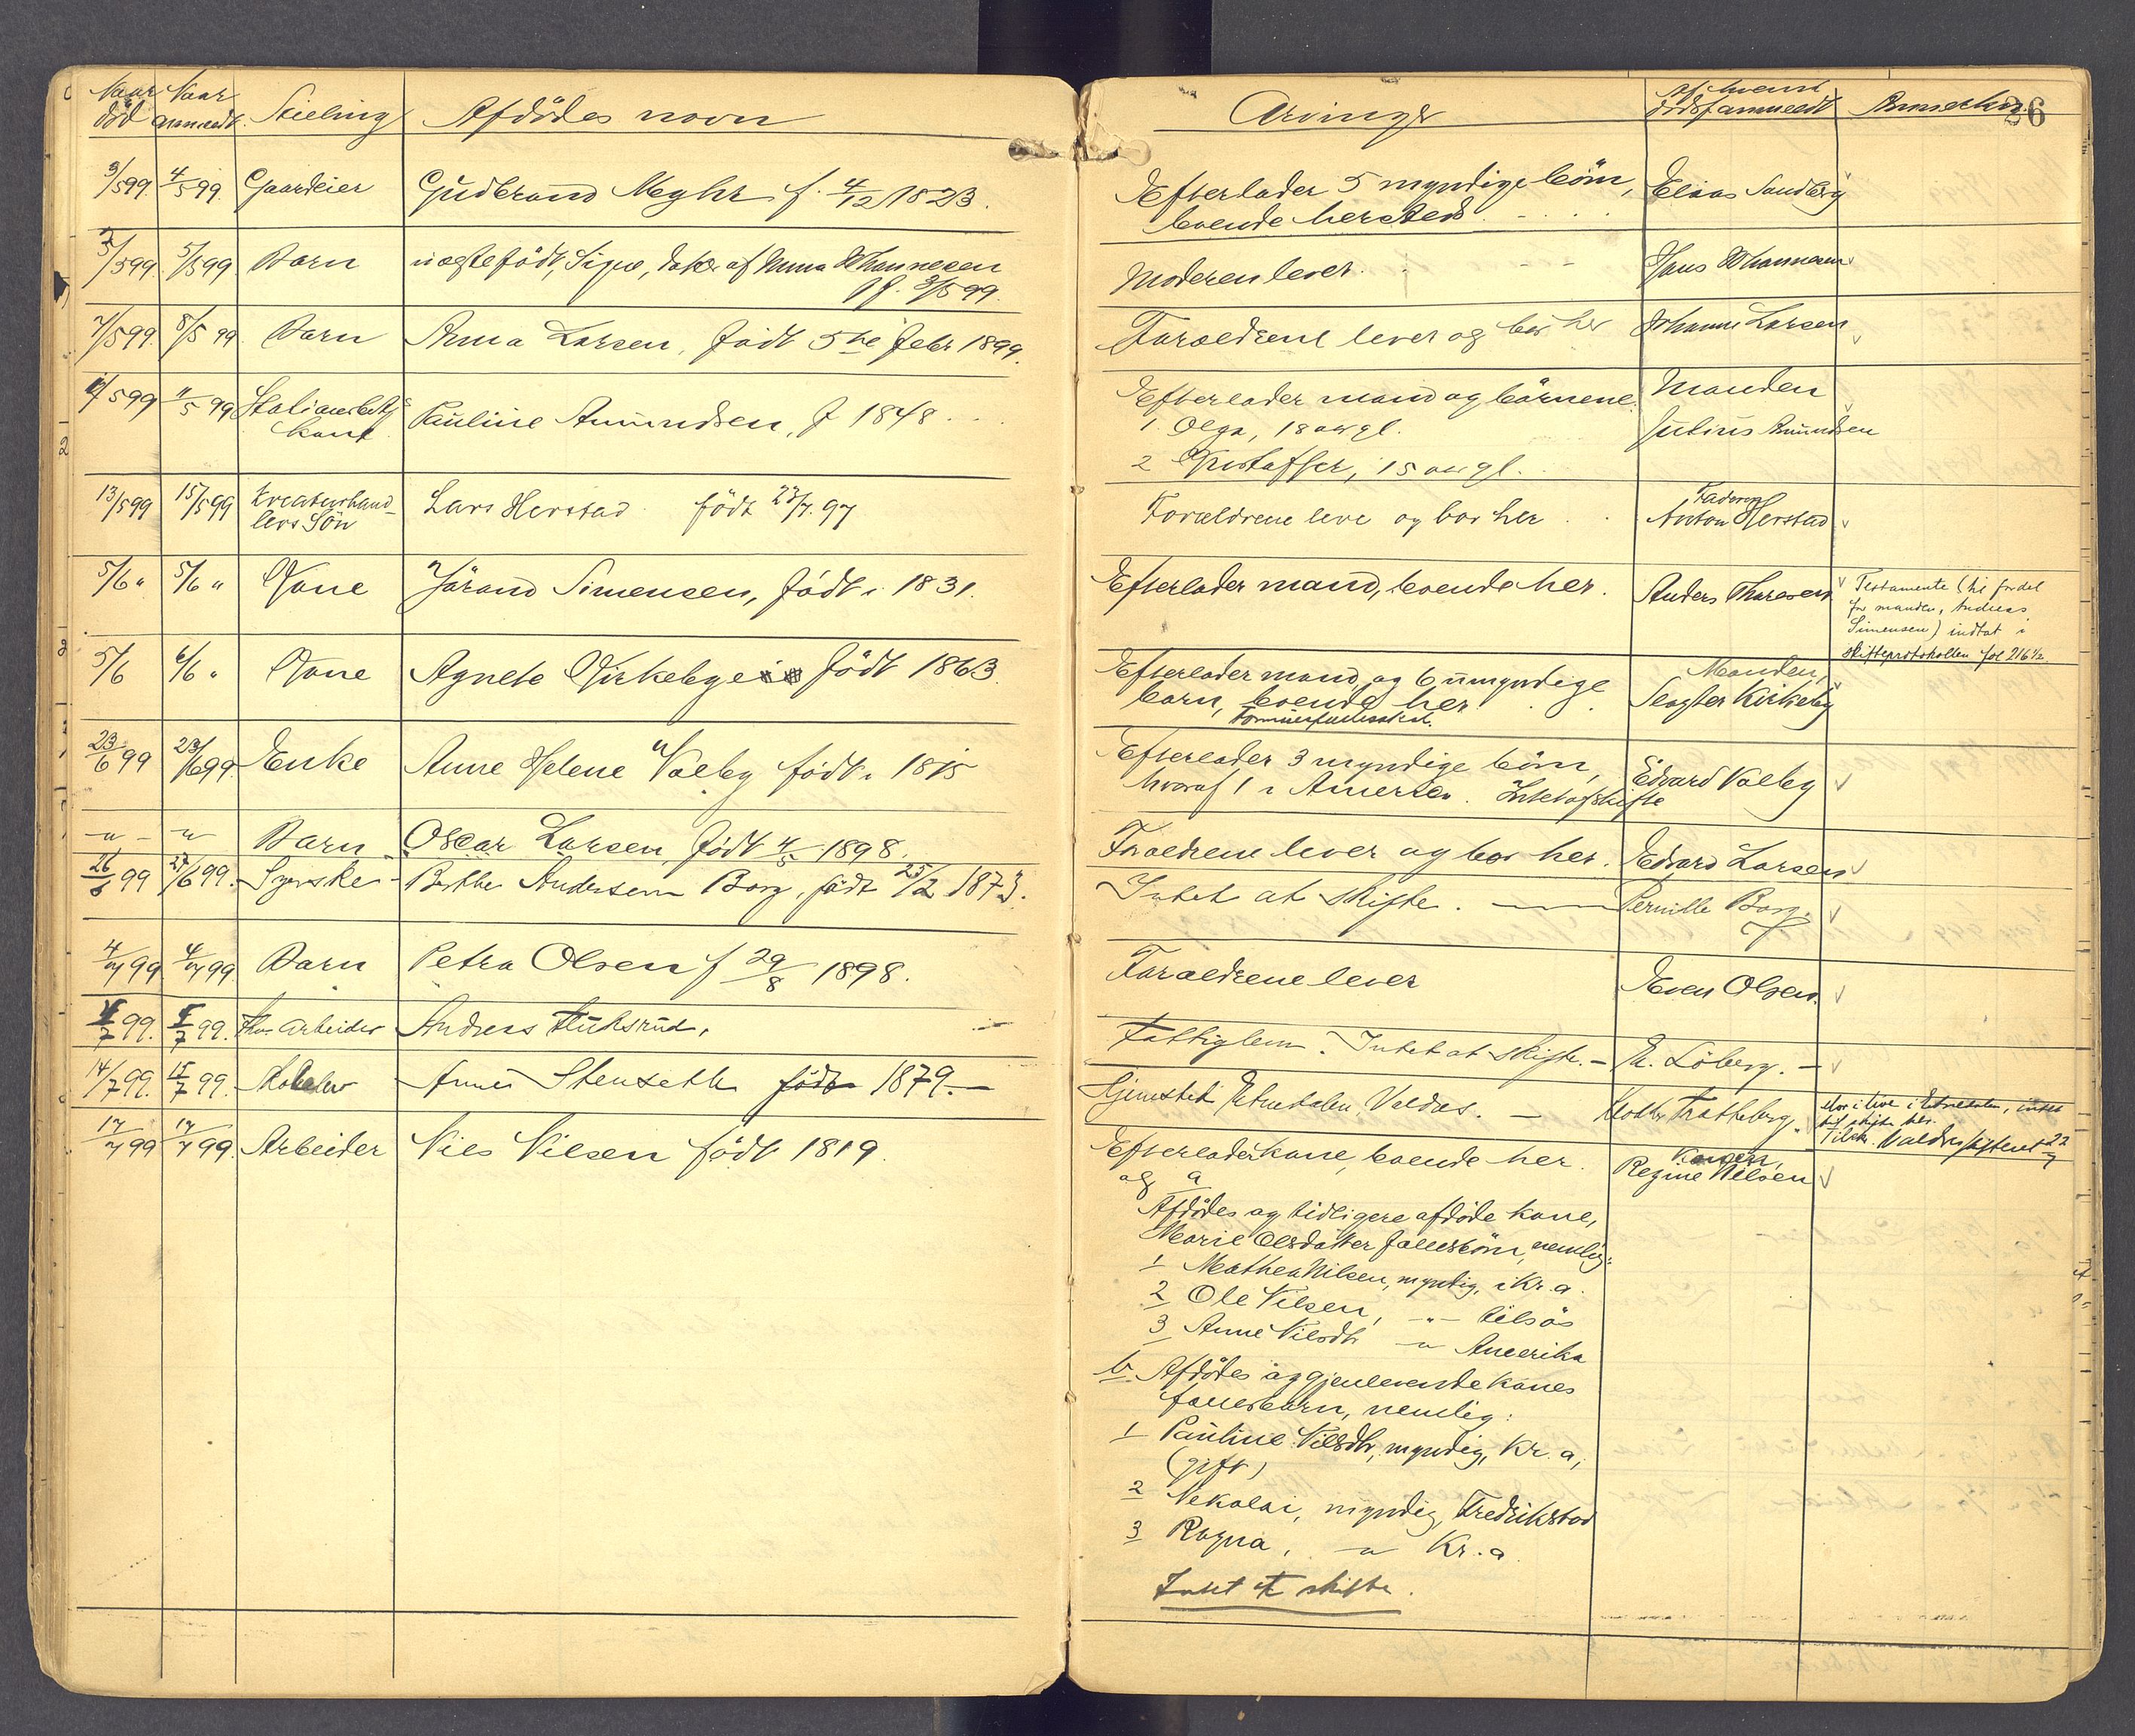 Naar død
Naar anmeldt.
Stilling
Afdødes navn
Arvinger
Af hvem dødsf. anmeldt
Anmerkn.
26
3/5 99. 4/5 99. Gaardeier Gudbrand Myhr f. 4/12 1823.
Efterlader 5 myndige börn, Elias Sandberg
boende hersteds
5/5 99. 5/5 99 Barn uægtefödt, Signe, dater af Anna Johannesen
f. 3/5 99.
Moderen lever. Hans Johannesen
7/5 99. 8/5 99 Barn Anna Larsen, födt 5te Febr 1899.
Foræeldrene lever og bor her Johanne Larsen
11/5 99 11/5 99 Stationsbetj.
kone Pauline Amundsen, f 1848
Efterlader mand og börnene: Manden
1 Olga, 18 aar gl. Julius Amundsen
2 Kristoffer, 15 aar gl.
13/5 99 15/5 99 Kreaturhand-
lers Sön Lars Herstad födt 23/7. 97
Forældrene leve og bor her Faderen
Anton Herstad
5/6 " 5/6 " Kone Jörand Simensen, födt i 1831.
Efterlader mand, boende her. Anders Thoresen
Testamente (til fordel
for manden, Andreas
Simensen) indtat i
skifteprotokollen fol 216 1/2
5/6 6/6 " Kone Agnete Kirkeby födt 1863
Efterlader mand og 6 umyndige Manden,
barn, boende her Slagter Kirkeby
23/6 99 23/6 99 Enke Anne Helene Valby födt i 1815
Efterlader 3 myndige börn, Edvard Valby
hvoraf 1 i Amerika. Intet at skifte
- " - - " - Barn Oscar Larsen, födt 4/5 1898.
Forældrene lever og bor her. Edvard Larsen
26/6 99 27/6 99. Syerske Berthe Andersen Borg, födt 25/2 1873.
Intet at skifte. Pernille Borg.
4/7 99 4/7 99 Barn Petra Olsen f 29/8 1898.
Forældrene lever Even Olsen
99. 5/7 99. Arbeider Andreas
Fattiglem. Intet at skifte. - Löberg. -
14/7 99. 15/7 99. Arne Stenseth födt 1879. -
Hjemsted Etnedalen, Valdres. -
Mor i live i Etnedalen, intet
at skifte her.
Tilskr. Valdres skifteret 22/7
17/7 99 17/7 99. Arbeider Nils Nilsen födt 1819.
Efterlader kone, boende her. Konen,
Regine Nilsen
og a
Afdödes og tidligere afdöde kone,
Marie Olsdatter fællesbörn, nemlig:
1 Mathea Nilsen, myndig, i Kr.a.
2 Ole Nilsen, - " -
3 Anne Nilsdtr - " - Amerika
b. Afdödes og gjenlevende kones
fællesbarn, nemlig:
1 Pauline Nilsdtr, myndig, Kr. a,
(gift)
2 Nekolai, myndig, Fredrikstad
3 Ragna, - " - Kr. a.
Intet at skifte.